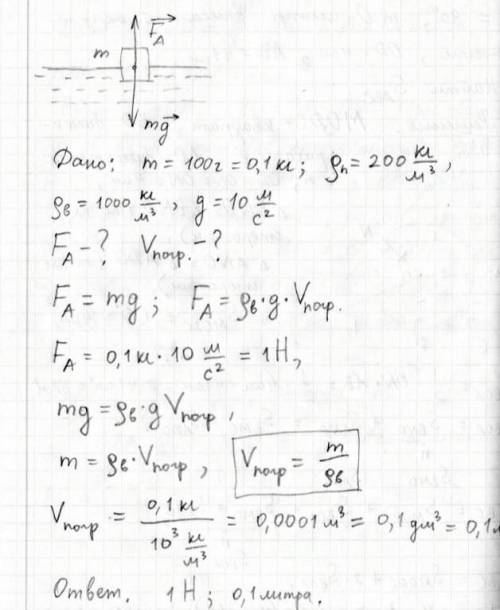 F⃗_A
m
mg⃗
Дано: m = 100г = 0,1 кг; ρп = 200 кг/м³,
ρв = 1000 кг/м³, g = 10 м/с²
F_A - ? Vпогр. - ?
F_A = mg; F_A = ρв·g·Vпогр.
F_A = 0,1 кг · 10 м/с² = 1 Н,
mg = ρв·g Vпогр,
m = ρв·Vпогр, Vпогр = m/ρв
Vпогр = 0,1 кг / 10³ кг/м³ = 0,0001 м³ = 0,1 дм³ = 0,1
Ответ. 1 Н; 0,1 литра.